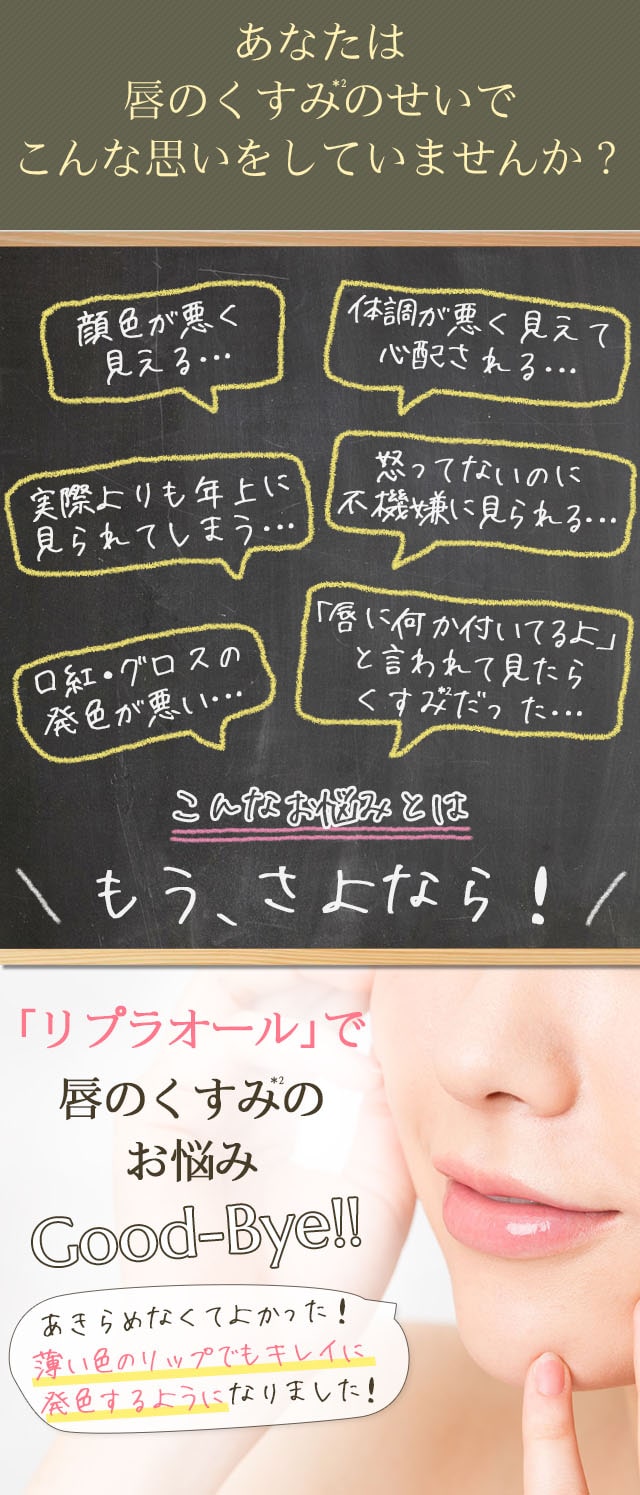 あなたは
唇のくすみ*2のせいで
こんな思いをしていませんか？
顔色が悪く
見える…
体調が悪く見えて
心配される…
実際よりも年上に
見られてしまう…
怒ってないのに
不機嫌に見られる…
口紅・グロスの
発色が悪い…
「唇に何か付いてるよ」
と言われて見たら
くすみ*2だった…
こんなお悩みとは
\ もう、さよなら！ /
「リプラオール」で
唇のくすみ*2の
お悩み
Good-Bye!!
あきらめなくてよかった！
薄い色のリップでもキレイに
発色するようになりました！